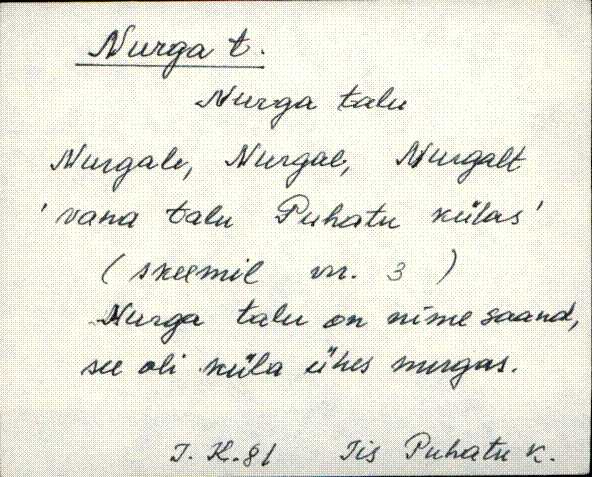 Nurga t.
Nurga talu
Nurgale, Nurgal, Nurgalt
'vana talu Puhatu külas'
(skeemil nr. 3)
Nurga talu on nime saand,
see oli küla ühes nurgas.
J. K. 81 Iis Puhatu k.